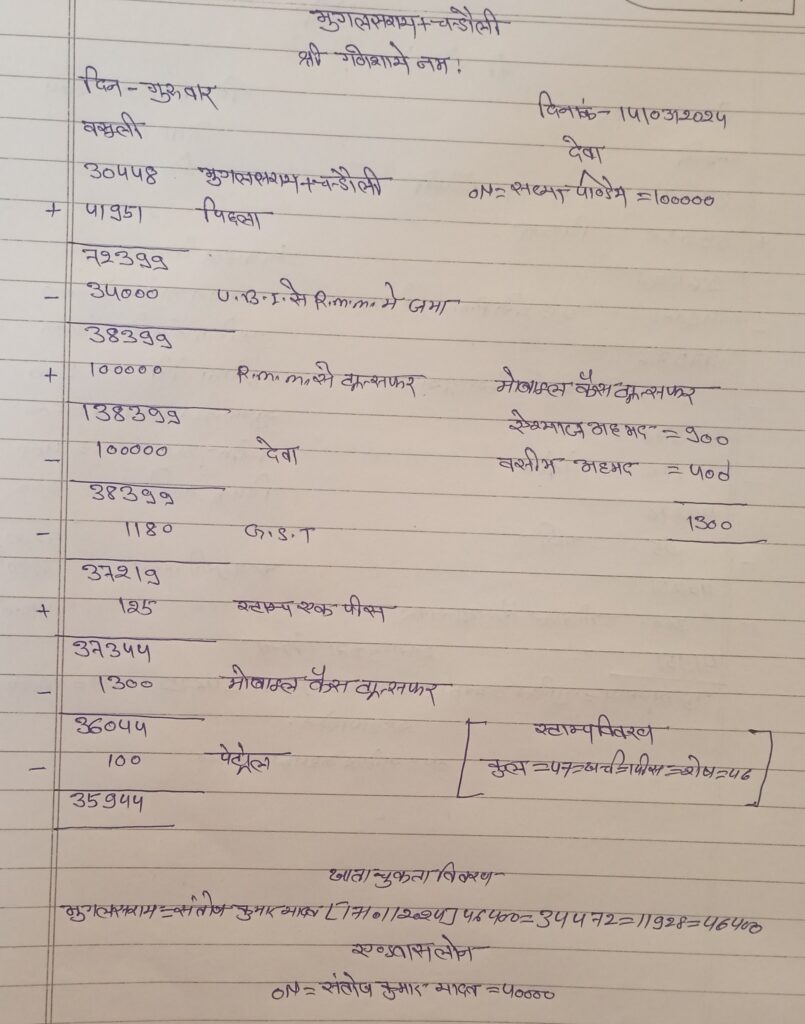 मुगलसराय+चन्डौली
श्री गणेशाये नमः
दिन - गुरुवार
दिनांक - 14/03/2024
वसूली
देवा
30448 मुगलसराय+चन्डौली
ON = सत्यम पाण्डेय = 100000
+ 41951 पिछला
72399
- 34000 U.B.I. से R.m.m. मे जमा
38399
+ 100000 R.m.m. से ट्रान्सफर
मोबाइल कैस ट्रान्सफर
138399
= 900
- 100000 देवा
वसीम अहमद = 400
38399
1300
- 1180 G.S.T
37219
+ 125 स्टाम्प एक पीस
37344
- 1300 मोबाइल कैस ट्रान्सफर
36044
स्टाम्प विवरण
- 100 पेट्रोल
[कुल = 47 = खर्च = 1 पीस = शेष = 46]
35944
खाता चुकता विवरण
मुगलसराय = संतोष कुमार यादव [17/01/2024] 46400 = 34472 = 11928 = 46400
ON = संतोष कुमार यादव = 40000